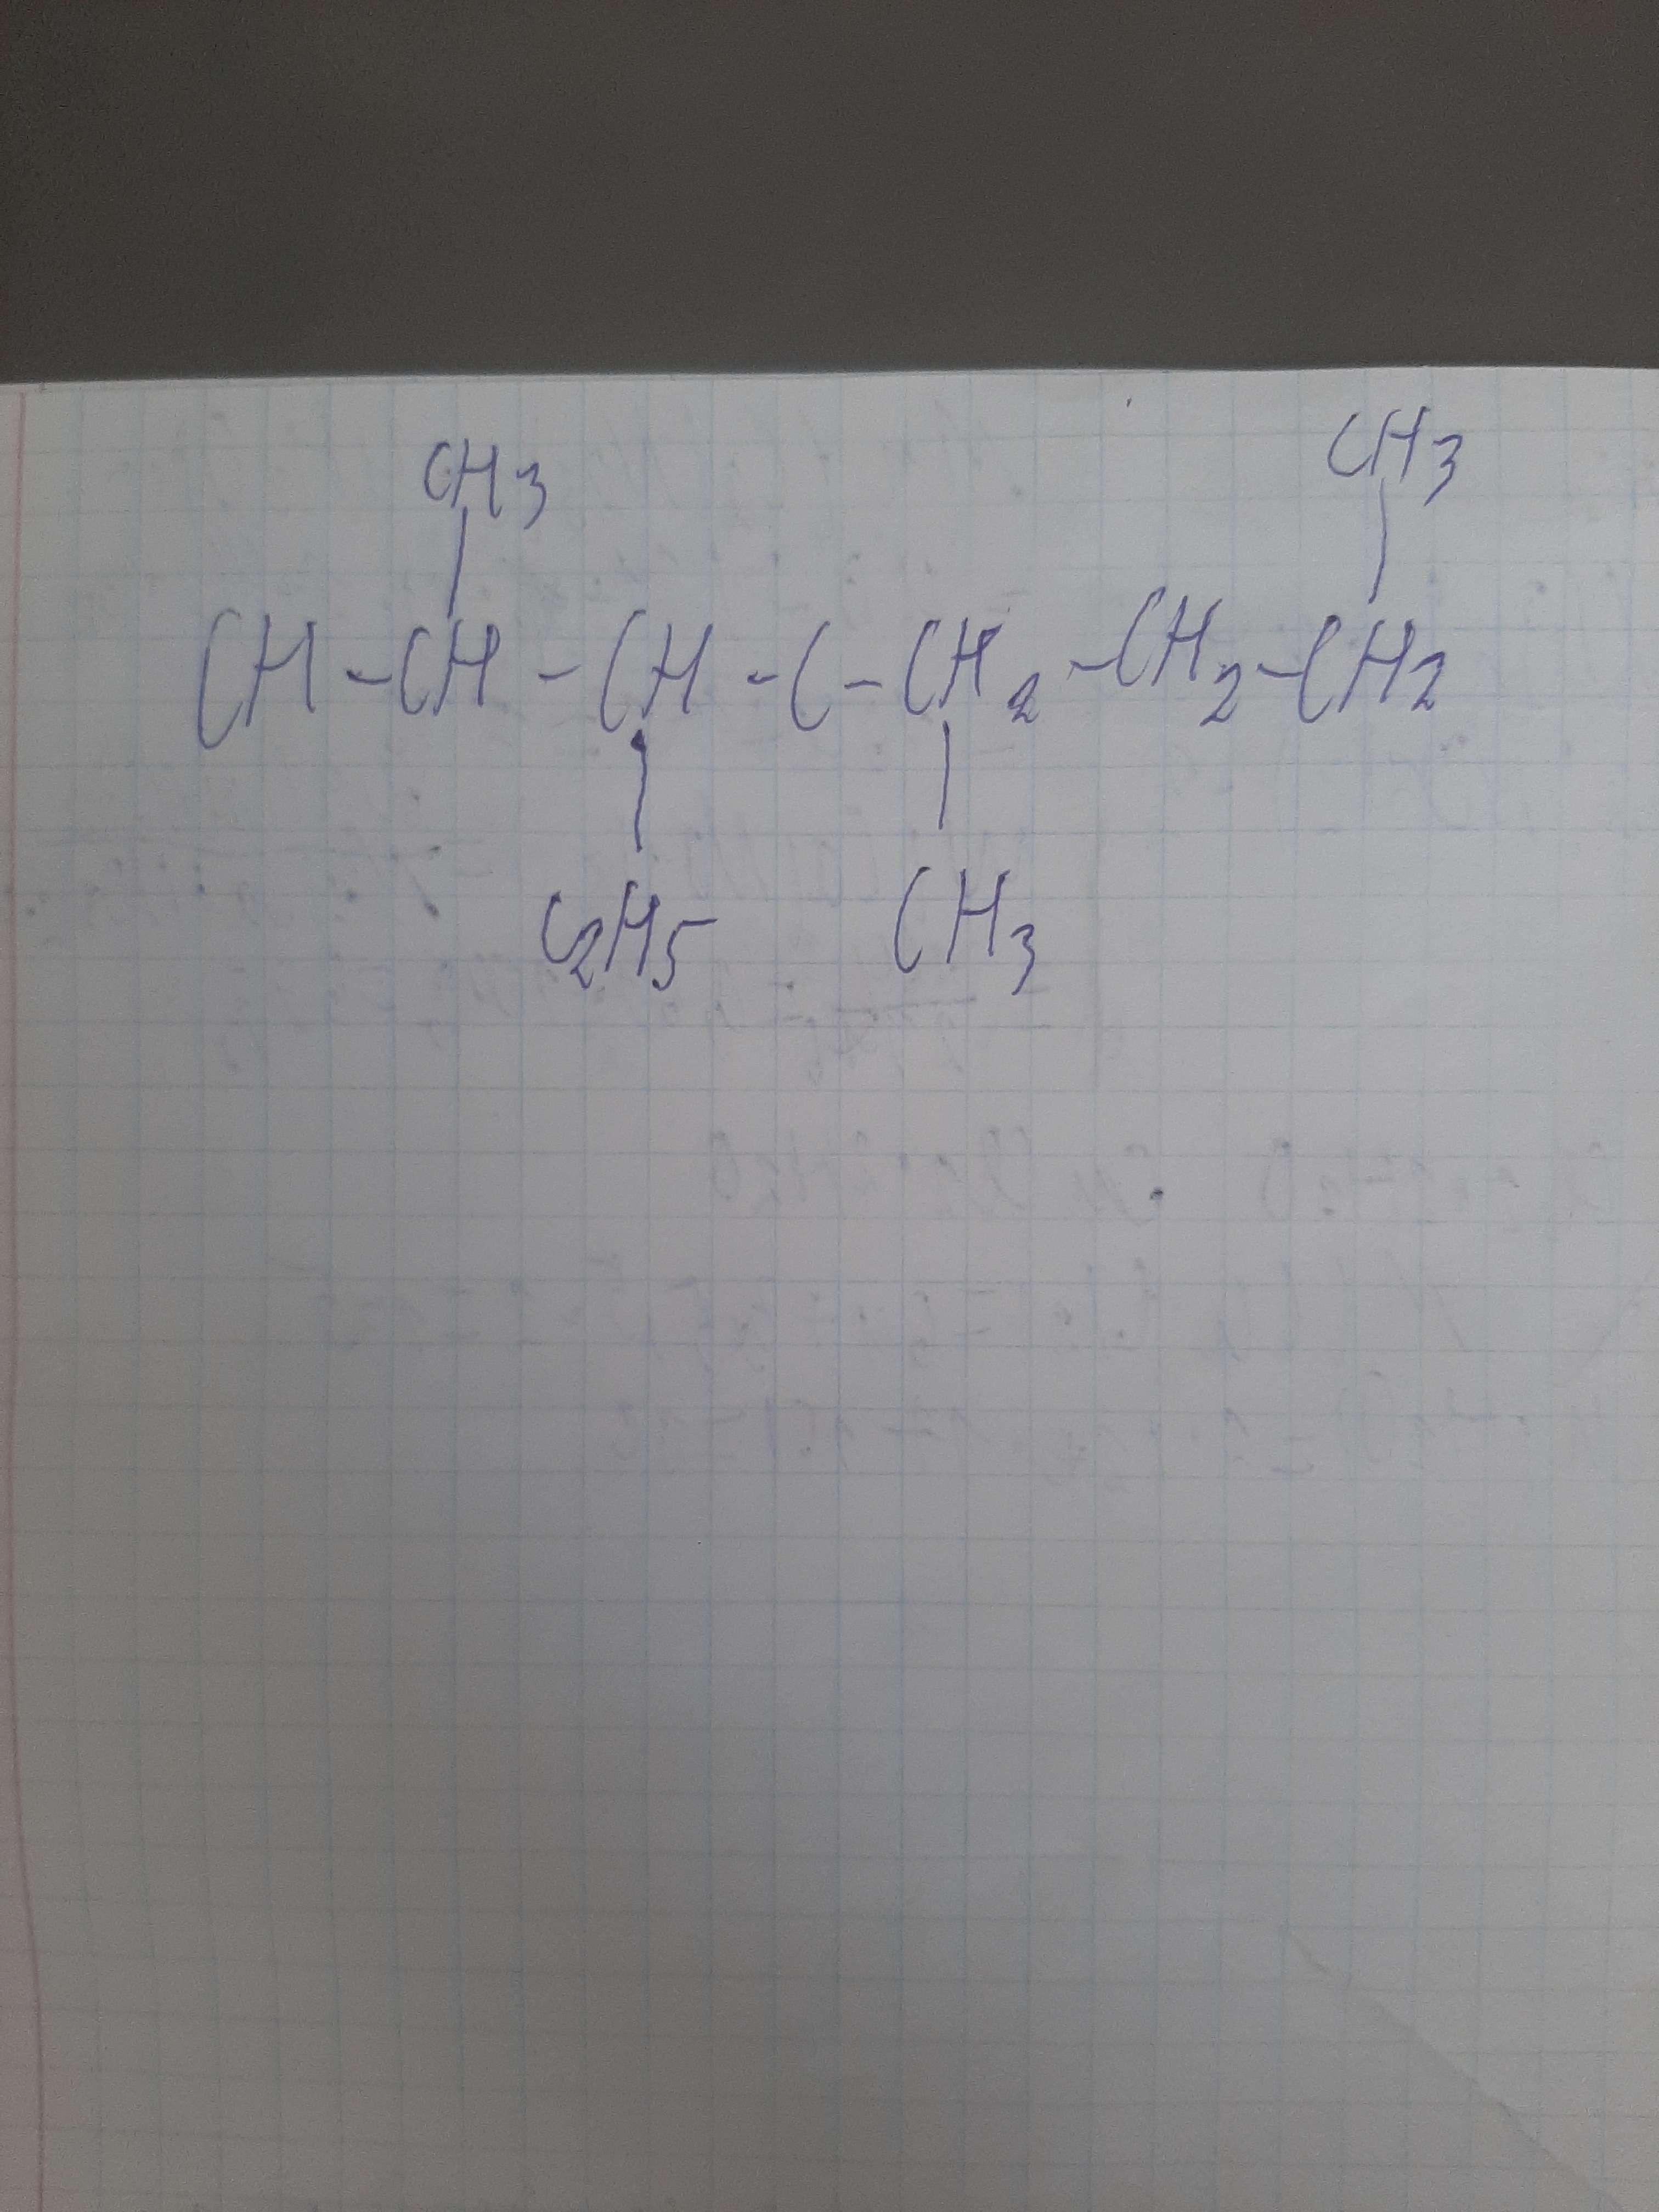 CH3 CH3
CH - CH - CH - C - CH2 - CH2 - CH2
C2H5 CH3